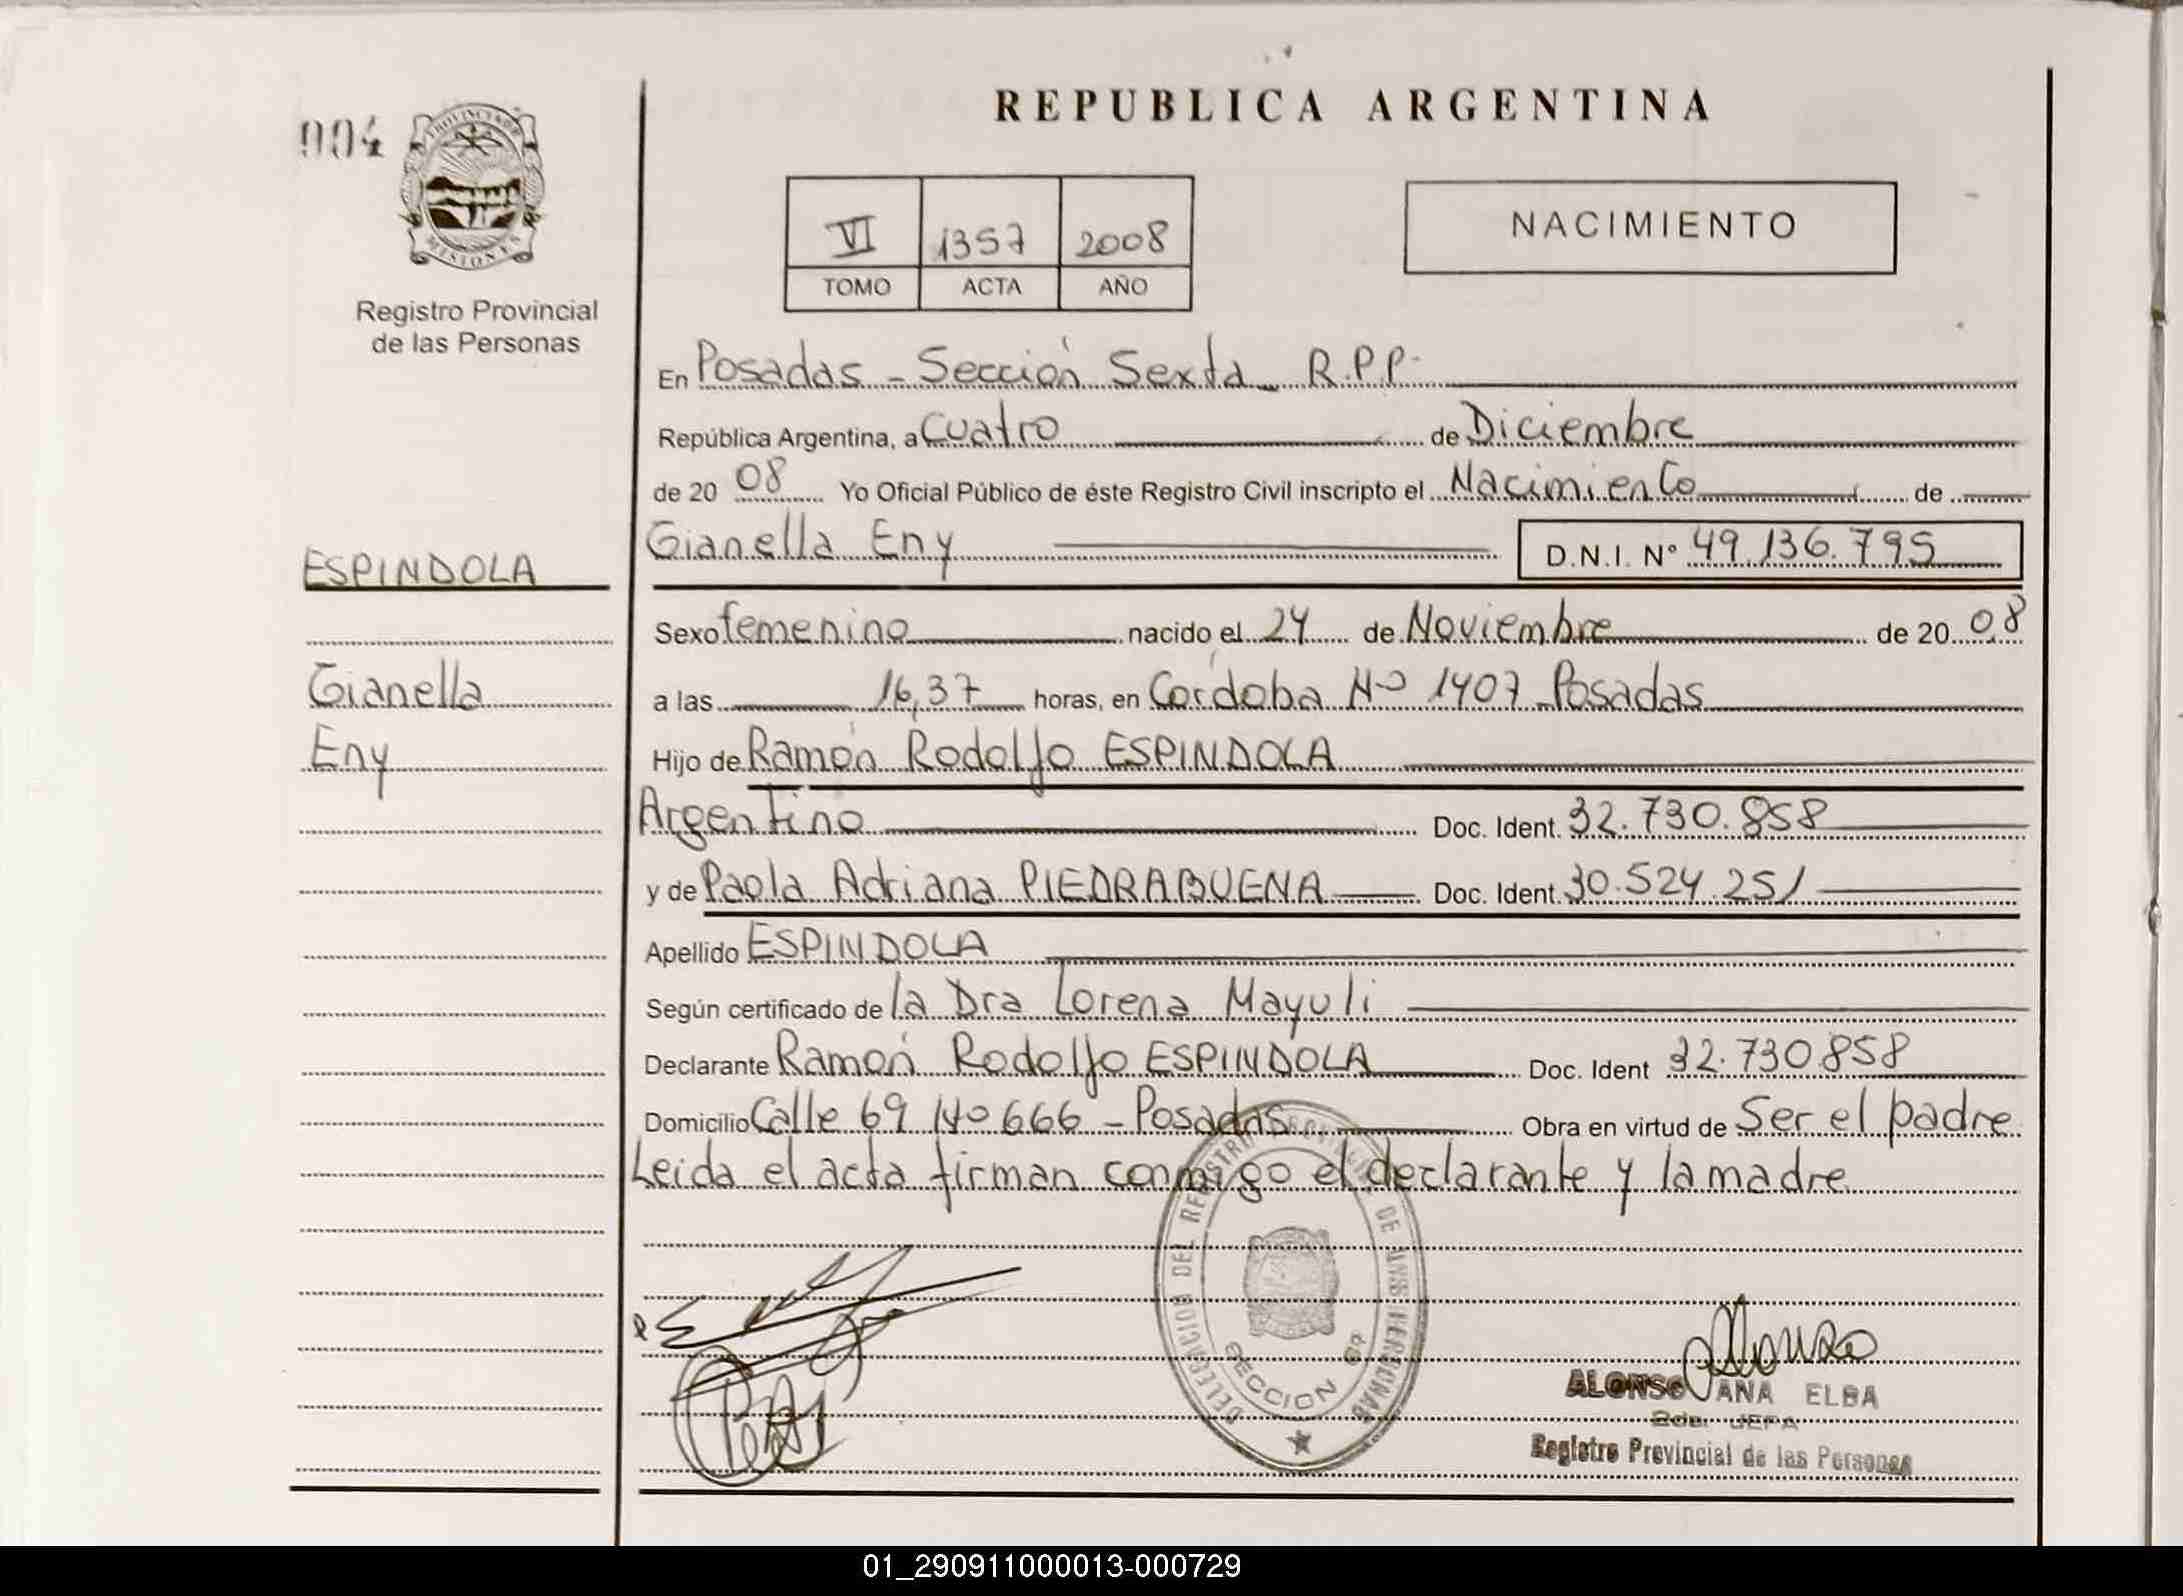 004
PROVINCIA DE
MISIONES
Registro Provincial
de las Personas
ESPINDOLA
Gianella
Eny
REPUBLICA ARGENTINA
VI 1357 2008
TOMO ACTA AÑO
NACIMIENTO
En Posadas - Sección Sexta - R.P.P.
República Argentina, a Cuatro de Diciembre
de 20 08 Yo Oficial Público de éste Registro Civil inscripto el Nacimiento de
Gianella Eny D.N.I. Nº 49.136.795
Sexo femenino nacido el 24 de Noviembre de 20 08
a las 16,37 horas, en Córdoba Nº 1407 Posadas
Hijo de Ramón Rodolfo ESPINDOLA
Argentino Doc. Ident. 32.730.858
y de Paola Adriana PIEDRABUENA Doc. Ident. 30.524.251
Apellido ESPINDOLA
Según certificado de la Dra Lorena Mayuli
Declarante Ramón Rodolfo ESPINDOLA Doc. Ident 32.730858
Domicilio Calle 69 Nº 666 - Posadas Obra en virtud de Ser el padre
Leida el acta firman conmigo el declarante y la madre
DELEGACION DEL REGISTRO PROVINCIAL DE LAS PERSONAS
SECCION 6ª
ALONSO ANA ELBA
2da. JEFA
Registro Provincial de las Personas
01_290911000013-000729